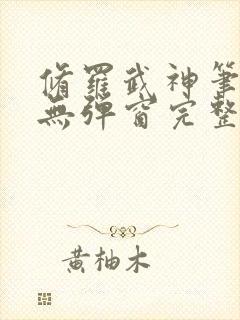 脩羅武神筆
無彈窗完整
黃柚木